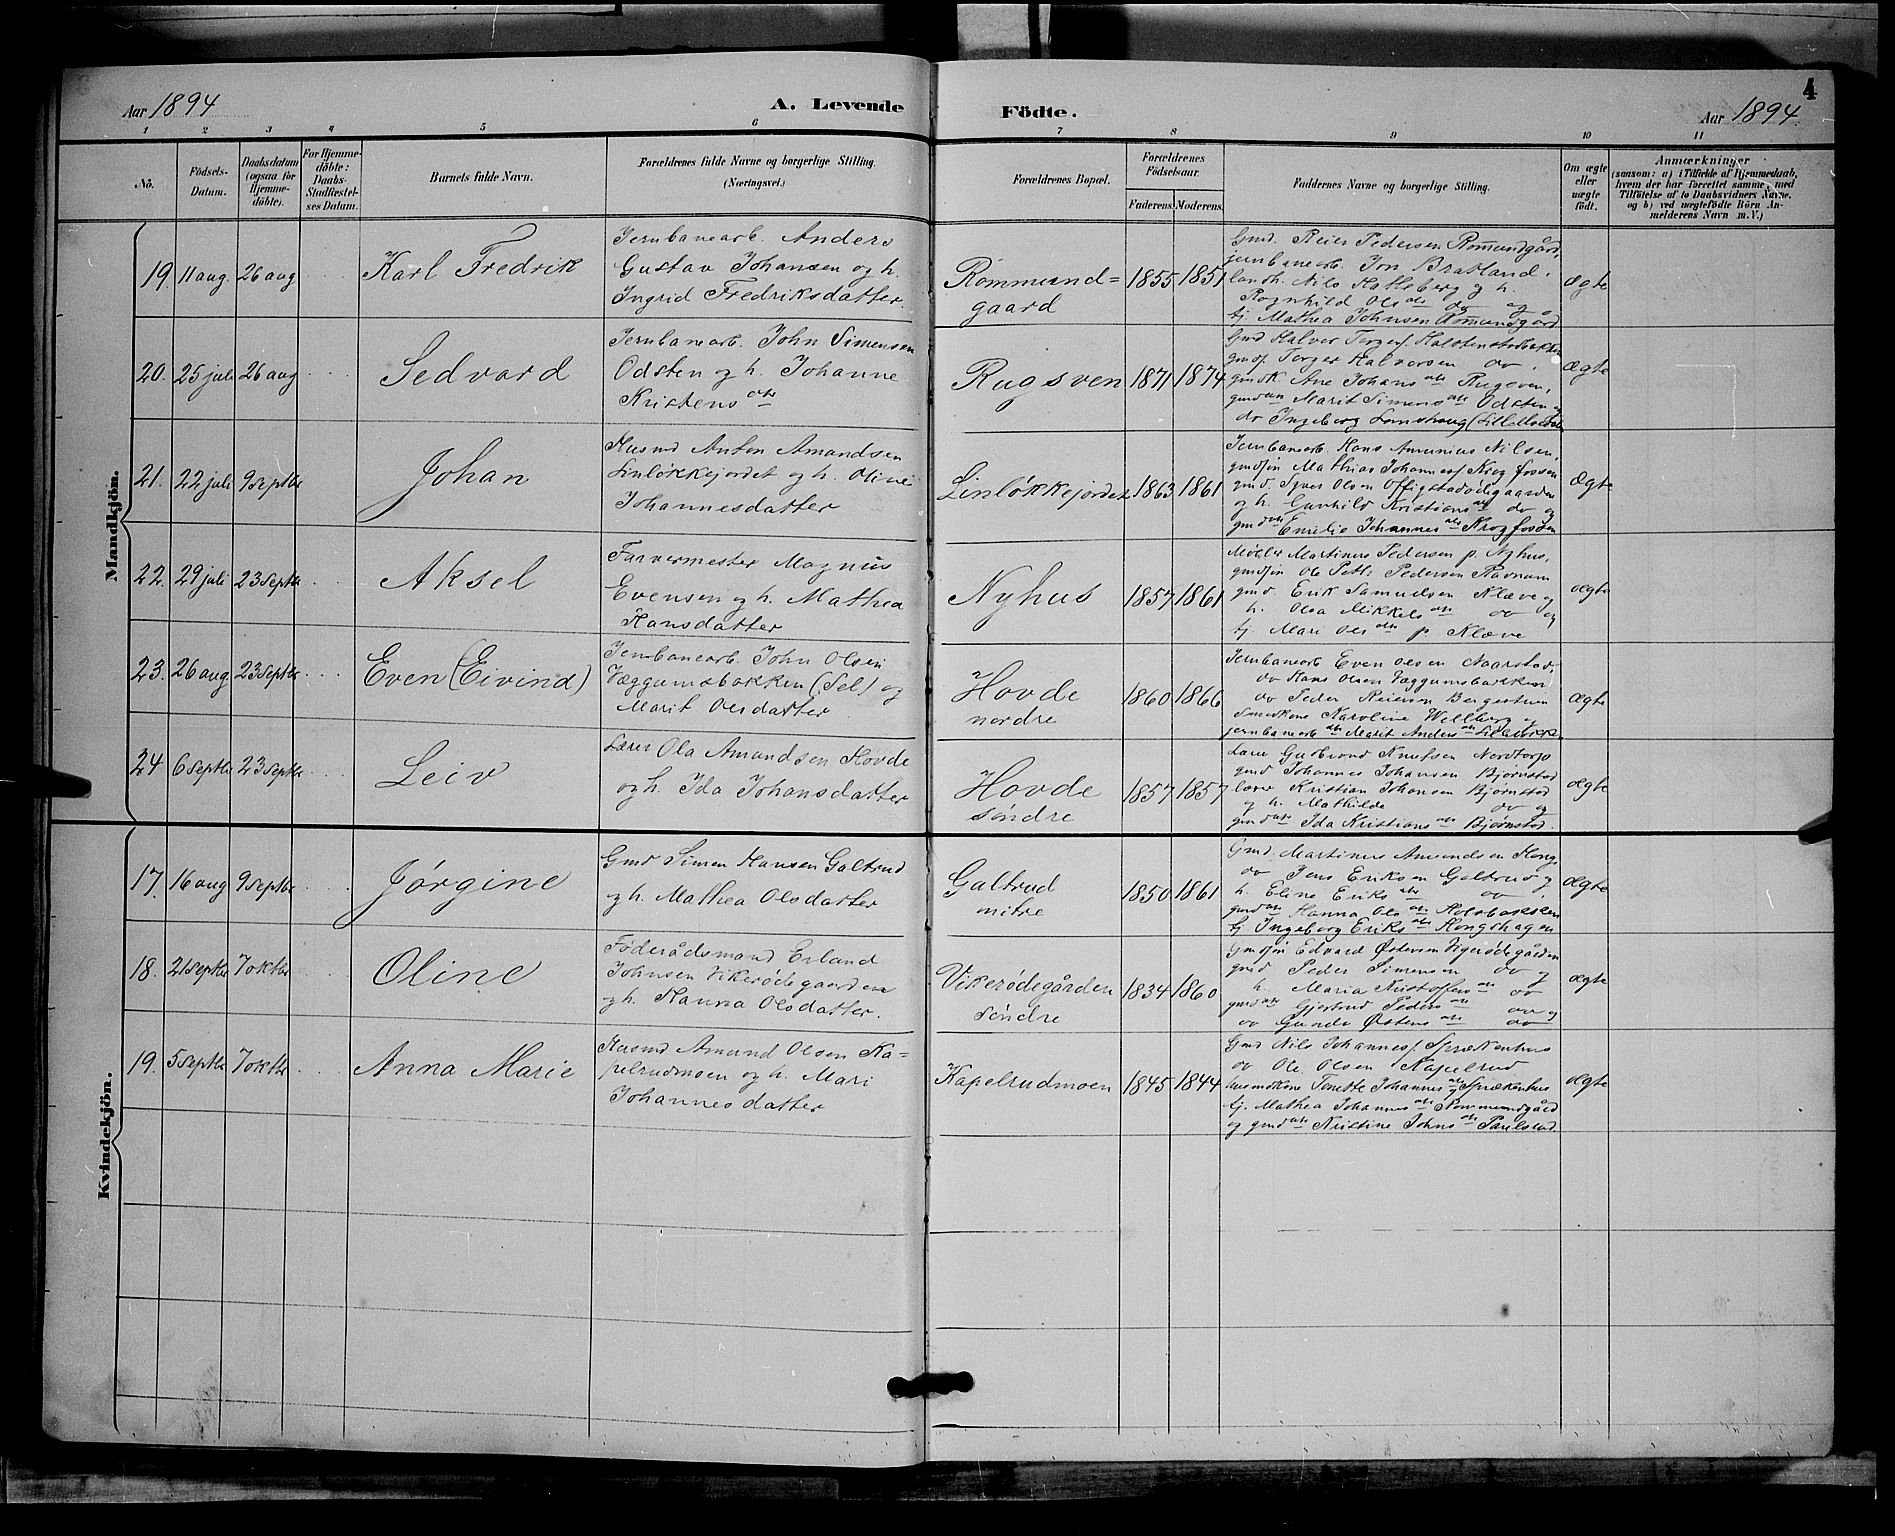 Aar 1894
A. Levende
Födte.
Aar 1894.
4
1 2 3 4 5 6 7 8 9 10 11
No.
Födsels-
Datum.
Daabsdatum
(ogsaa for
Hjemme-
döbte).
For Hjemme-
döbte:
Daabs-
Stadfæstel-
ses Datum.
Barnets fulde Navn.
Forældrenes fulde Navne og borgerlige Stilling.
(Næringsvei.)
Forældrenes Bopæl.
Forældrenes
Födselsaar.
Faderens. Moderens.
Faddernes Navne og borgerlige Stilling.
Om ægte
eller
uægte
födt.
Anmærkninger
(saasom: a) i Tilfælde af Hjemmedaab,
hvem der har forrettet samme, med
Tilföielse af to Daabsvidners Navne.
og b) ved uægtefödte Börn An-
melderens Navn m.V.)
Mandkjön.
19. 11 aug. 26 aug Karl Fredrik
Jernbanearb. Anders
Gustav Johansen og h.
Ingrid Fredriksdatter
Rommund=
gaard
1855 1851
Gmd. Reier Pedersen Rommundgård,
jernbanearb. Jon Bratland,
landh. Nils Hatleberg og h.
Ragnhild Olsdtr do og
tj. Mathea Johnsen Rommundgård
ægte
20. 25 juli 26 aug Sedvard
Jernbanearb. John Simensen
Odsten og h. Johanne
Kristensdtr
Rugsven
1871 1874
Gmd Halvor Torgers.
gmds. Torger Halvorsen do,
gmdk Ane Johansdtr Rugsven,
gmddtr Marit Simensdtr Odsten og
do Ingeborg
ægte
21. 22 juli 9 septbr Johan
Husmd Anton Amandsen
Linløkkejordet og h. Oline
Johannesdatter
Linløkkejordet
1863 1861
Jernbanearb. Hans Amunius Nilsen,
gmdsøn Mathias Johanness. Krogfossen
gmd. Syver Olsen Offigstadødegaarden
og h. Gunhild Kristiansdtr do og
gmddtr Emilie Johannesdtr Krogfossen
ægte
22. 29 juli 23 septbr Aksel
Farvermester Magnus
Evensen og h. Mathea
Hansdatter
Nyhus
1857 1861
Møller Martinus Pedersen p. Nyhus,
gmdsøn Ole Petter Pedersen Ravnum
gmd. Erik Samuelsen Klæve og
h. Olea Mikkelsdtr do og
tj. Mari Olsdtr p Klæve
ægte
23. 26 aug 23 septbr Even (Eivind)
Jernbanearb. John Olsen
Væggumsbakken (Sel) og
Marit Olsdatter
Hovde
nordre
1860 1866
Jernbanearb Even Olsen Aarstad,
do Hans Olsen Væggumsbakken
do Peder Reiersen Bergestuen
smedkone Karoline Wellberg og
jernbanearb.dtr Marit Andersdtr
ægte
24 6 septbr 23 septbr Leiv
Lærer Ola Amundsen Hovde
og h. Ida Johansdatter
Hovde
søndre
1857 1857
Lærer Gudbrand Knutsen Nordtorp
gmd Johannes Johansen Bjørnstad
lærer Kristian Johansen Bjørnstad
og h. Mathilde do og
gmddtr Ida Kristiansdtr Bjørnstad.
ægte
Kvindekjön.
17. 16 aug 9 septbr Jørgine
Gmd Simen Hansen Galtrud
og h. Mathea Olsdatter
Galtrud
mitre
1850 1861
Gmd. Martinus Amundsen Hong,
do Jens Eriksen Galtrud og
h. Eline Eriksdtr do,
gmddtr Hanna Olsdtr Holsbakken
tj. Ingeborg Eriksdtr Hongshagen
ægte
18. 21 septbr 7 oktbr Oline
Føderådsmand Erland
Johnsen Vikerødegaarden
og h. Hanna Olsdatter.
Vikerødegården
søndre
1834 1860
Gmdsøn Edvard Østensen Vigerødegården
gmd Peder Simensen do og
h. Maria Kristoffersdtr do
gmddtr Gjertrud Pedersdtr do og
do Gunda Østensdtr do
ægte
19. 5 septbr 7 oktbr Anna Marie
Husmd Amund Olsen Ka=
pelrudmoen og h. Mari
Johannesdatter
Kapelrudmoen
1845 1844
Gmd Nils Johanness. Sprækenhus
do Ole Olsen Kapelrud
husmdkone Tonette Johannesdtr Sprækenhus
tj. Mathea Johannesdtr Rommundgård
og gmddtr Kristine Johnsdtr Paulsrud.
ægte